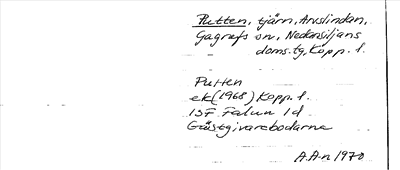 Putten, tjärn, Arvslindan,
Gagnefs sn, Nedansiljans
doms.tg, Kopp. l.
Putten
ek (1968) Kopp. l.
13F Falun 1d
Gästgivarebodarna
A.A-n 1970